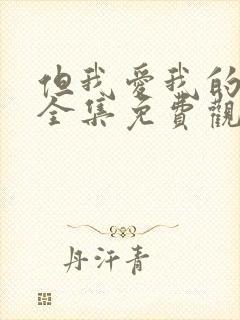 但我愛我的
全集免費觀
丹汗青